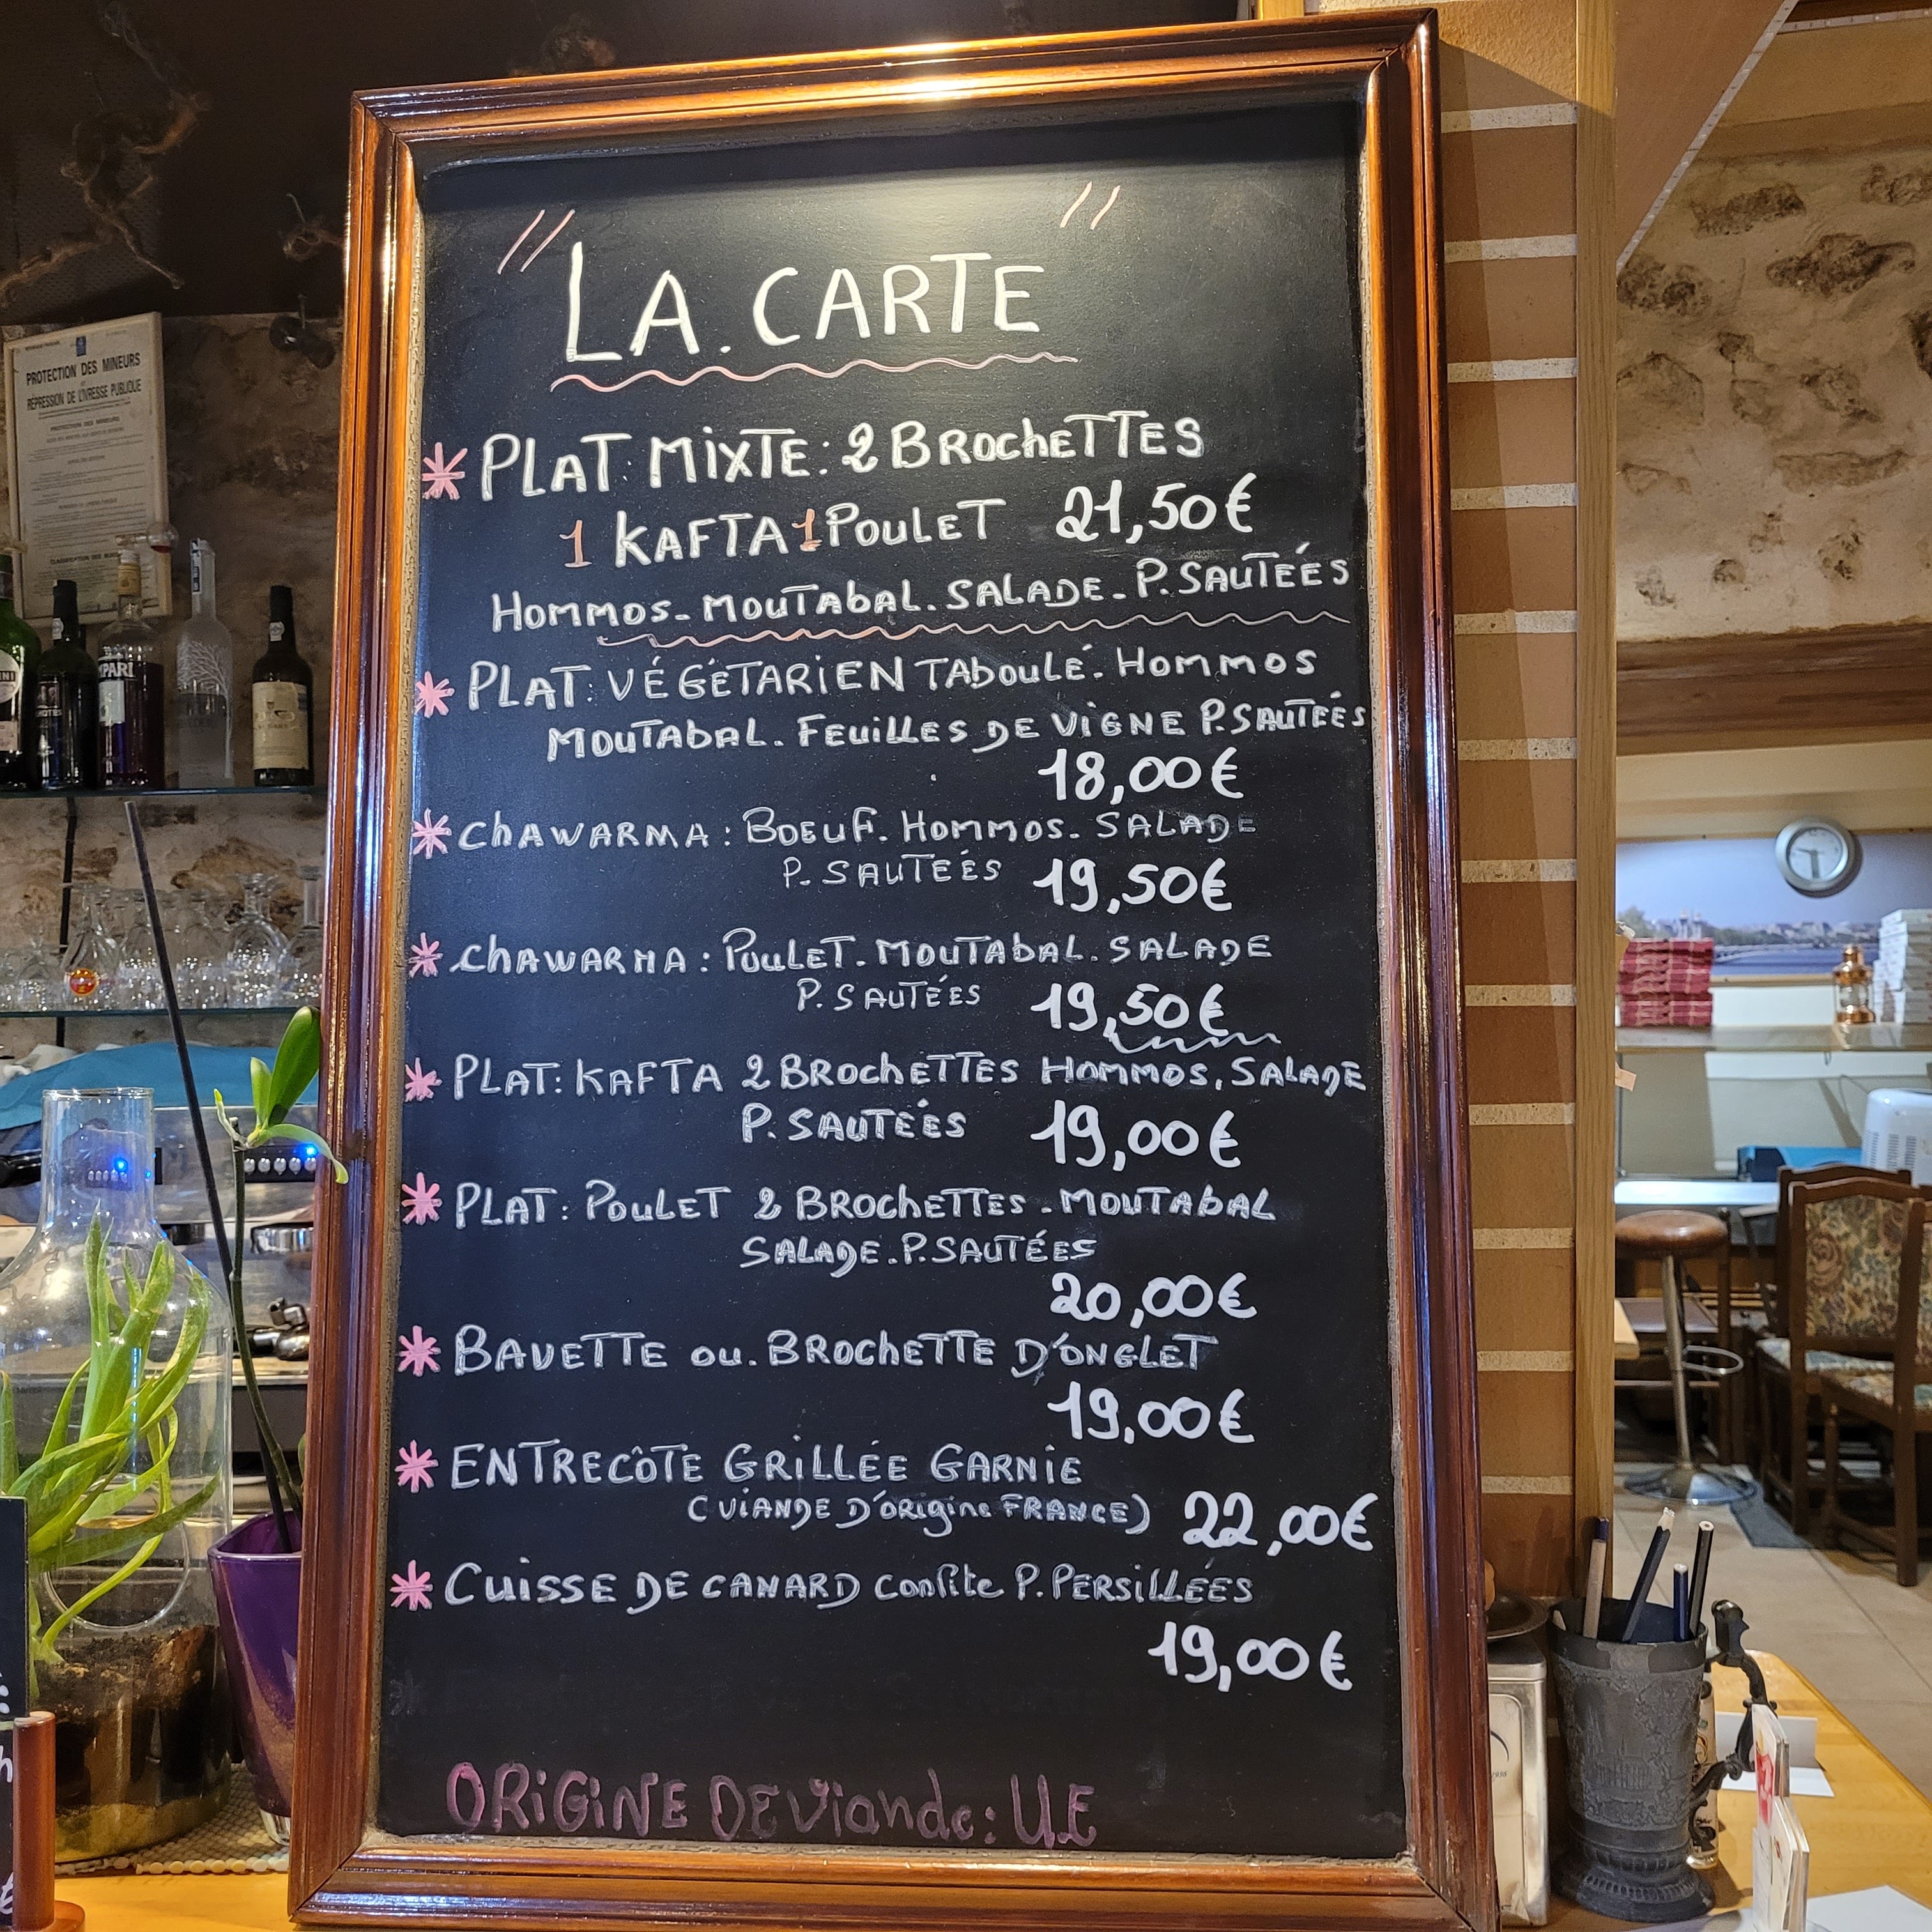 PROTECTION DES MINEURS
RÉPRESSION DE L'IVRESSE PUBLIQUE
PROTECTION DES MINEURS
"LA.CARTE"
* PLAT: MIXTE: 2 BROCHETTES
1 KAFTA 1 POULET 21,50€
HOMMOS-MOUTABAL.SALADE-P.SAUTÉÉS
* PLAT: VÉGÉTARIEN TABOULÉ.HOMMOS
MOUTABAL.FEUILLES DE VIGNE P.SAUTÉÉS
18,00€
* CHAWARMA: BOEUF.HOMMOS.SALADE
P.SAUTEÉS 19,50€
* CHAWARMA: POULET.MOUTABAL.SALADE
P.SAUTÉES 19,50€
* PLAT: KAFTA 2 BROCHETTES HOMMOS.SALADE
P.SAUTÉÉS 19,00€
* PLAT: POULET 2 BROCHETTES-MOUTABAL
SALADE.P.SAUTÉES
20,00€
* BAVETTE OU.BROCHETTE D'ONGLET
19,00€
* ENTRECÔTE GRILLÉE GARNIE
(VIANDE D'ORIGINE FRANCE) 22,00€
* CUISSE DE CANARD Confite P.PERSILLÉES
19,00€
ORIGINE DE Viande: U.E